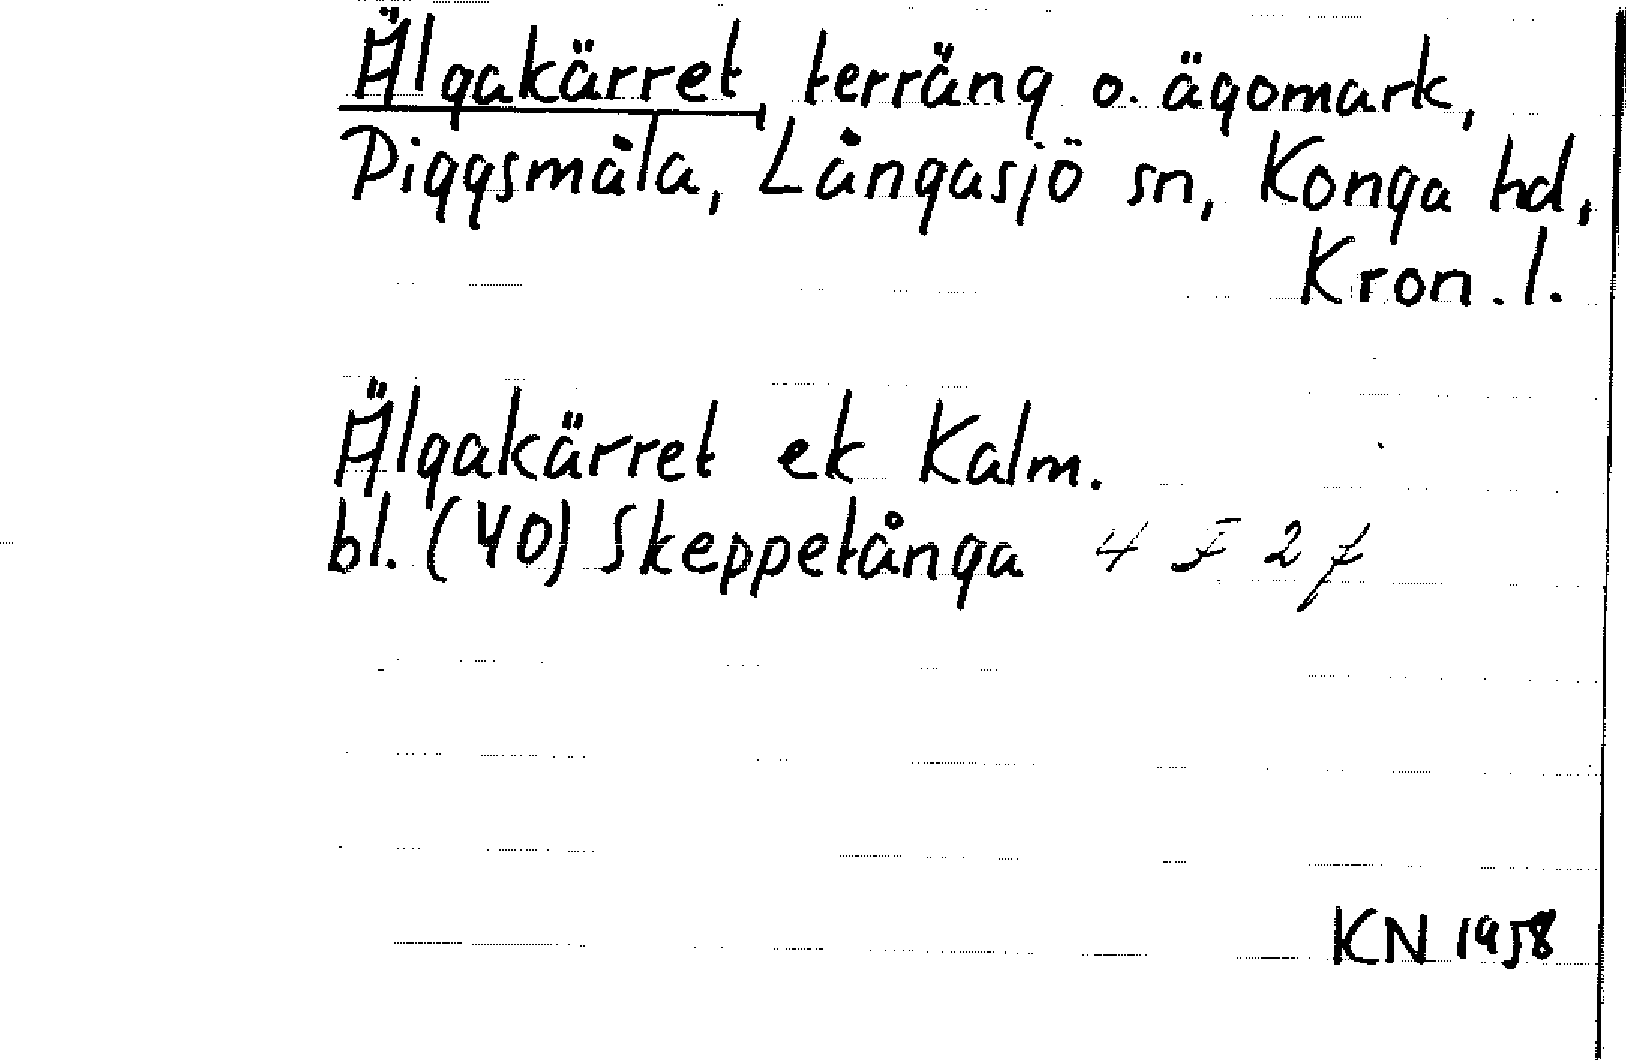 Älgakärret, terräng o. ägomark,
Piggsmåla, Långasjö sn, Konga hd,
Kron. l.
Älgakärret ek Kalm.
bl. (40) Skeppetånga 4 F 2 f
KN 1958